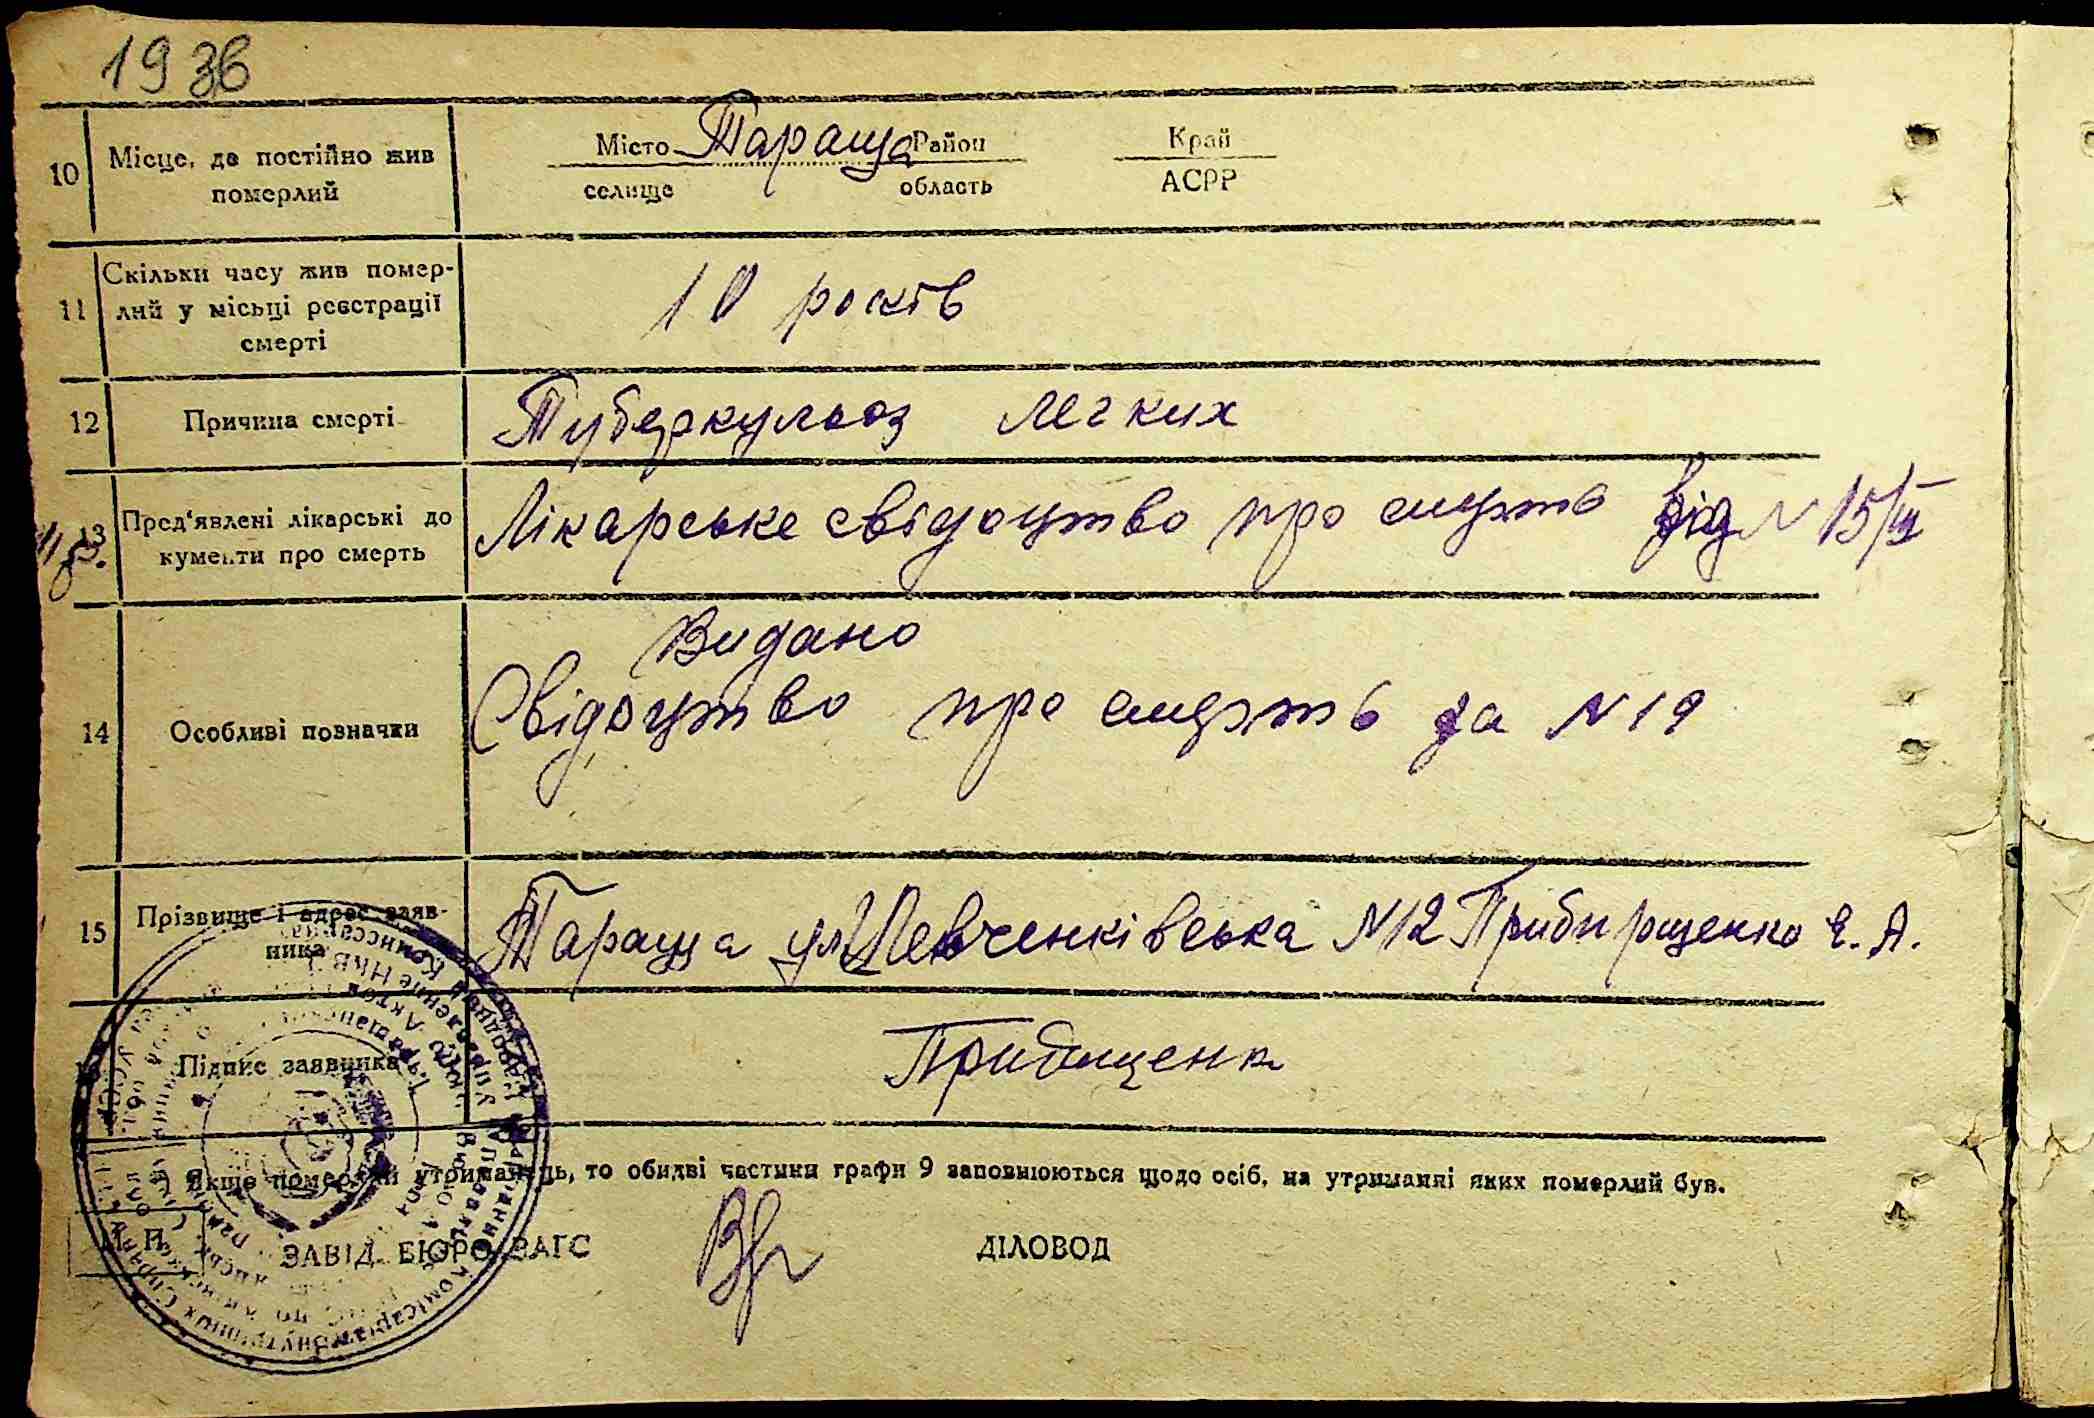 1936
10 Місце, де постійно жив померлий
Місто Тараща Район Край
селище область АСРР
11 Скільки часу жив помер-
лий у місьці реєстрації
смерті
10 років
12 Причина смерті Туберкульоз легких
13 Пред'явлені лікарські до
кументи про смерть
Лікарське свідоцтво про смерть від 15/III
14 Особливі позначки
Видано
Свідоцтво про смерть за N 19
15 Прізвище і адрес заяв-
ника
Тараща ул Шевченківська N12
Підпис заявника
Якщо померлий утриманець, то обидві частини графи 9 заповнюються щодо осіб, на утриманні яких померлий був.
М. П. ЗАВІД. БЮРО ЗАГС ДІЛОВОД